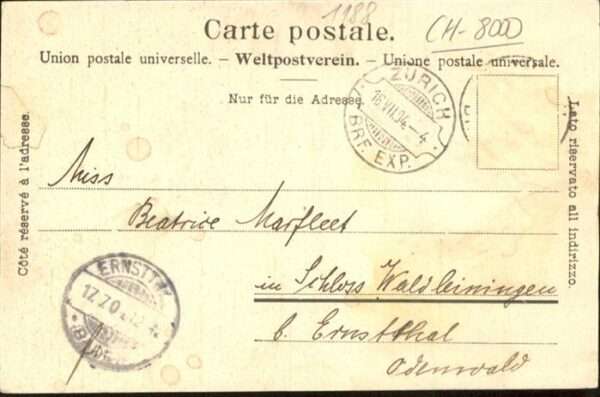 1188
Carte postale.
(CH-8000)
Union postale universelle. – Weltpostverein. – Unione postale universale.
Nur für die Adresse.
ZÜRICH
16.VII.04.-4
BRF. EXP.
Côté réservé à l'adresse.
Lato riservato all indirizzo.
Miss
Beatrice Marfleet
in Schloss Waldleiningen
b. Ernstthal
Odenwald
ERNSTTH
17.7.0